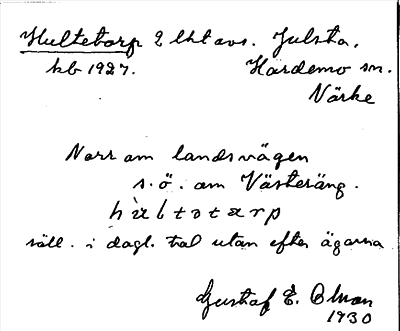 Hultetorp 2 lht avs. Julsta.
kb 1927. Hardemo sn.
Närke
Norr om landsvägen
s.ö. om Västeräng.
säll. i dagl. tal utan efter ägarna
Gustaf E. Olson
1930